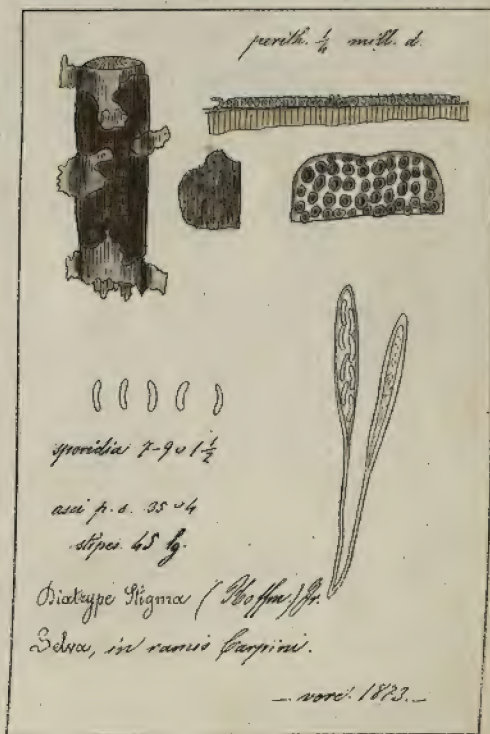 perith. ¼ mill. d.
sporidia 7-9 ⌣ 1½
asci p. s. 35 ⌣ 4
stipes 45 lg.
Diatrype Stigma (Hoffm.) Fr.
Selva, in ramis Carpini.
1873.